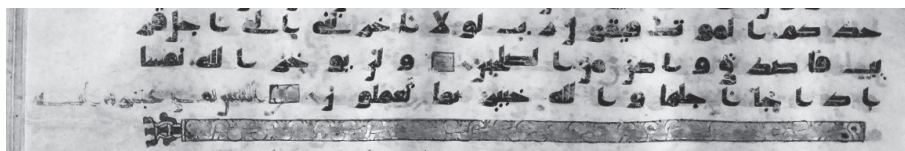 حدكم الموت فيقول رب لولا اخرتني الى اجل قر
يب فاصدق واكن من الصلحين ولن يوخر الله نفسا
اذا جا اجلها والله خبير بما تعملون